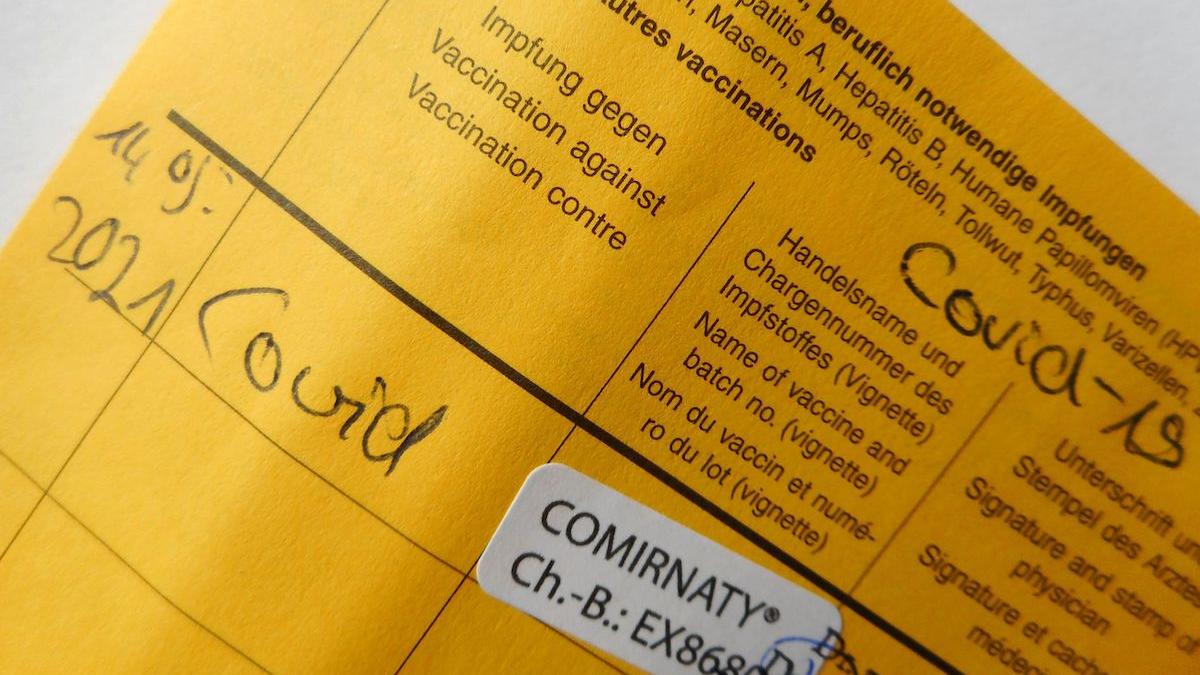 , beruflich notwendige Impfungen
patitis A, Hepatitis B, Humane Papillomviren (HP
Masern, Mumps, Röteln, Tollwut, Typhus, Varizellen,
autres vaccinations
Covid-19
Impfung gegen
Vaccination against
Vaccination contre
Handelsname und
Chargennummer des
Impfstoffes (Vignette)
Name of vaccine and
batch no. (vignette)
Nom du vaccin et numé-
ro du lot (vignette)
Unterschrift un
Stempel des Arztes
Signature and stamp of
physician
Signature et cache
médeci
14 05.
2021
Covid
COMIRNATY®
Ch.-B.: EX8680